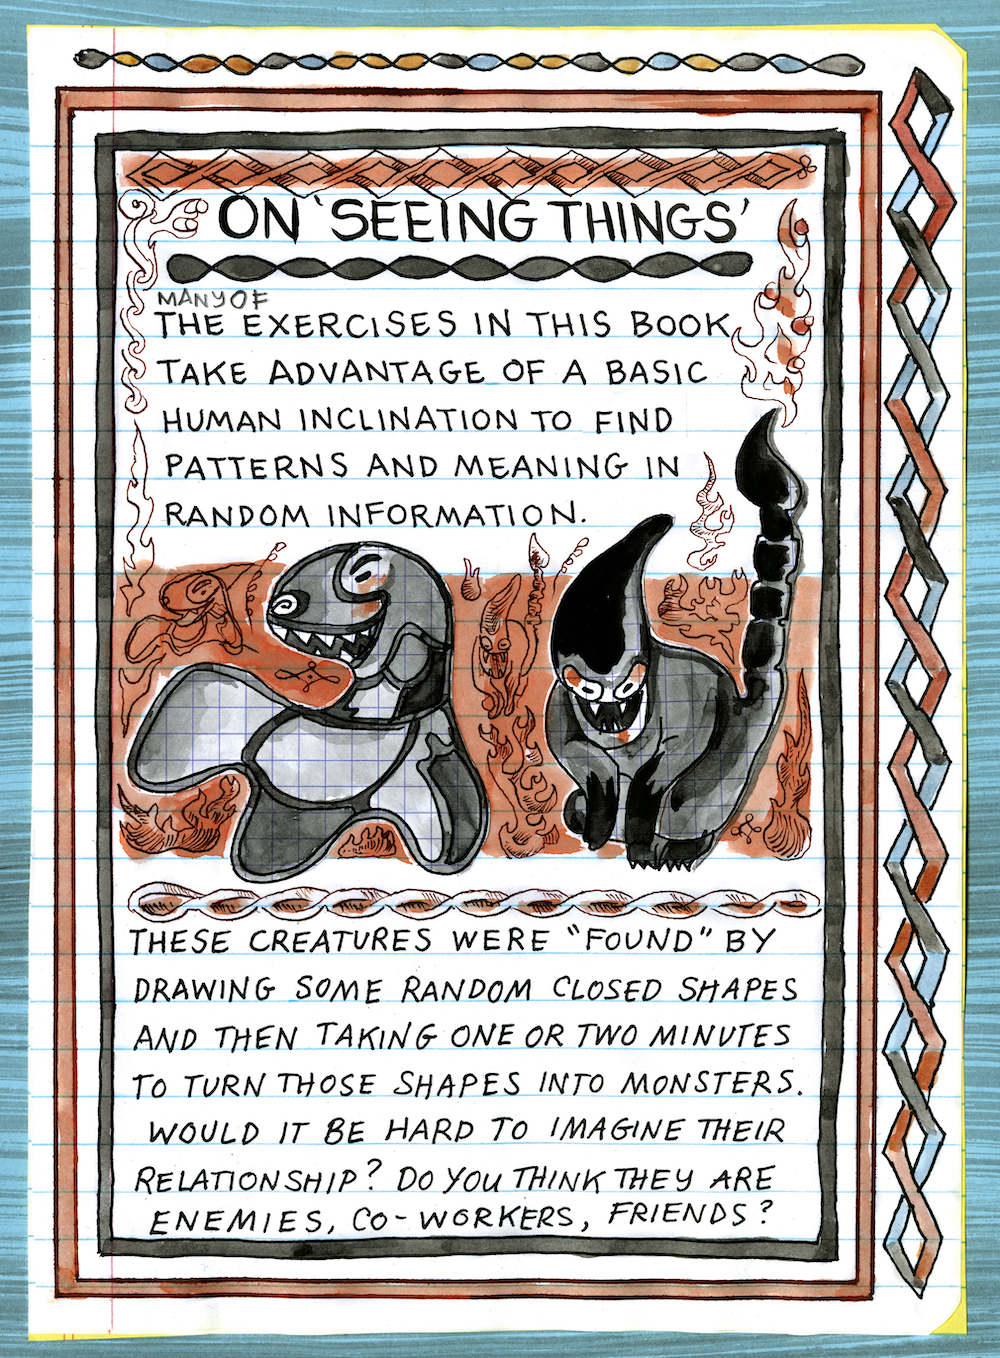 ON 'SEEING THINGS'
MANY OF
THE EXERCISES IN THIS BOOK
TAKE ADVANTAGE OF A BASIC
HUMAN INCLINATION TO FIND
PATTERNS AND MEANING IN
RANDOM INFORMATION.
THESE CREATURES WERE "FOUND" BY
DRAWING SOME RANDOM CLOSED SHAPES
AND THEN TAKING ONE OR TWO MINUTES
TO TURN THOSE SHAPES INTO MONSTERS.
WOULD IT BE HARD TO IMAGINE THEIR
RELATIONSHIP? DO YOU THINK THEY ARE
ENEMIES, CO-WORKERS, FRIENDS?